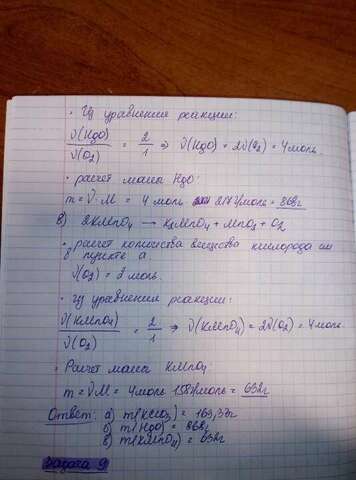 · Из уравнения реакции:
ν(HgO)/ν(O₂) = 2/1 ⇒ ν(HgO) = 2ν(O₂) = 4моль
· расчет массы HgO:
m = ν·M = 4 моль · 217г/моль = 868г
в) 2KMnO₄ → K₂MnO₄ + MnO₂ + O₂
· расчет количества вещества кислорода см
в пункте а
ν(O₂) = 2 моль.
· Из уравнения реакции:
ν(KMnO₄)/ν(O₂) = 2/1 ⇒ ν(KMnO₄) = 2ν(O₂) = 4моль
· Расчет массы KMnO₄
m = ν·M = 4моль · 158г/моль = 632г
Ответ: а) m(KClO₃) = 163,3г
б) m(HgO) = 868г
в) m(KMnO₄) = 632г
Задача 9